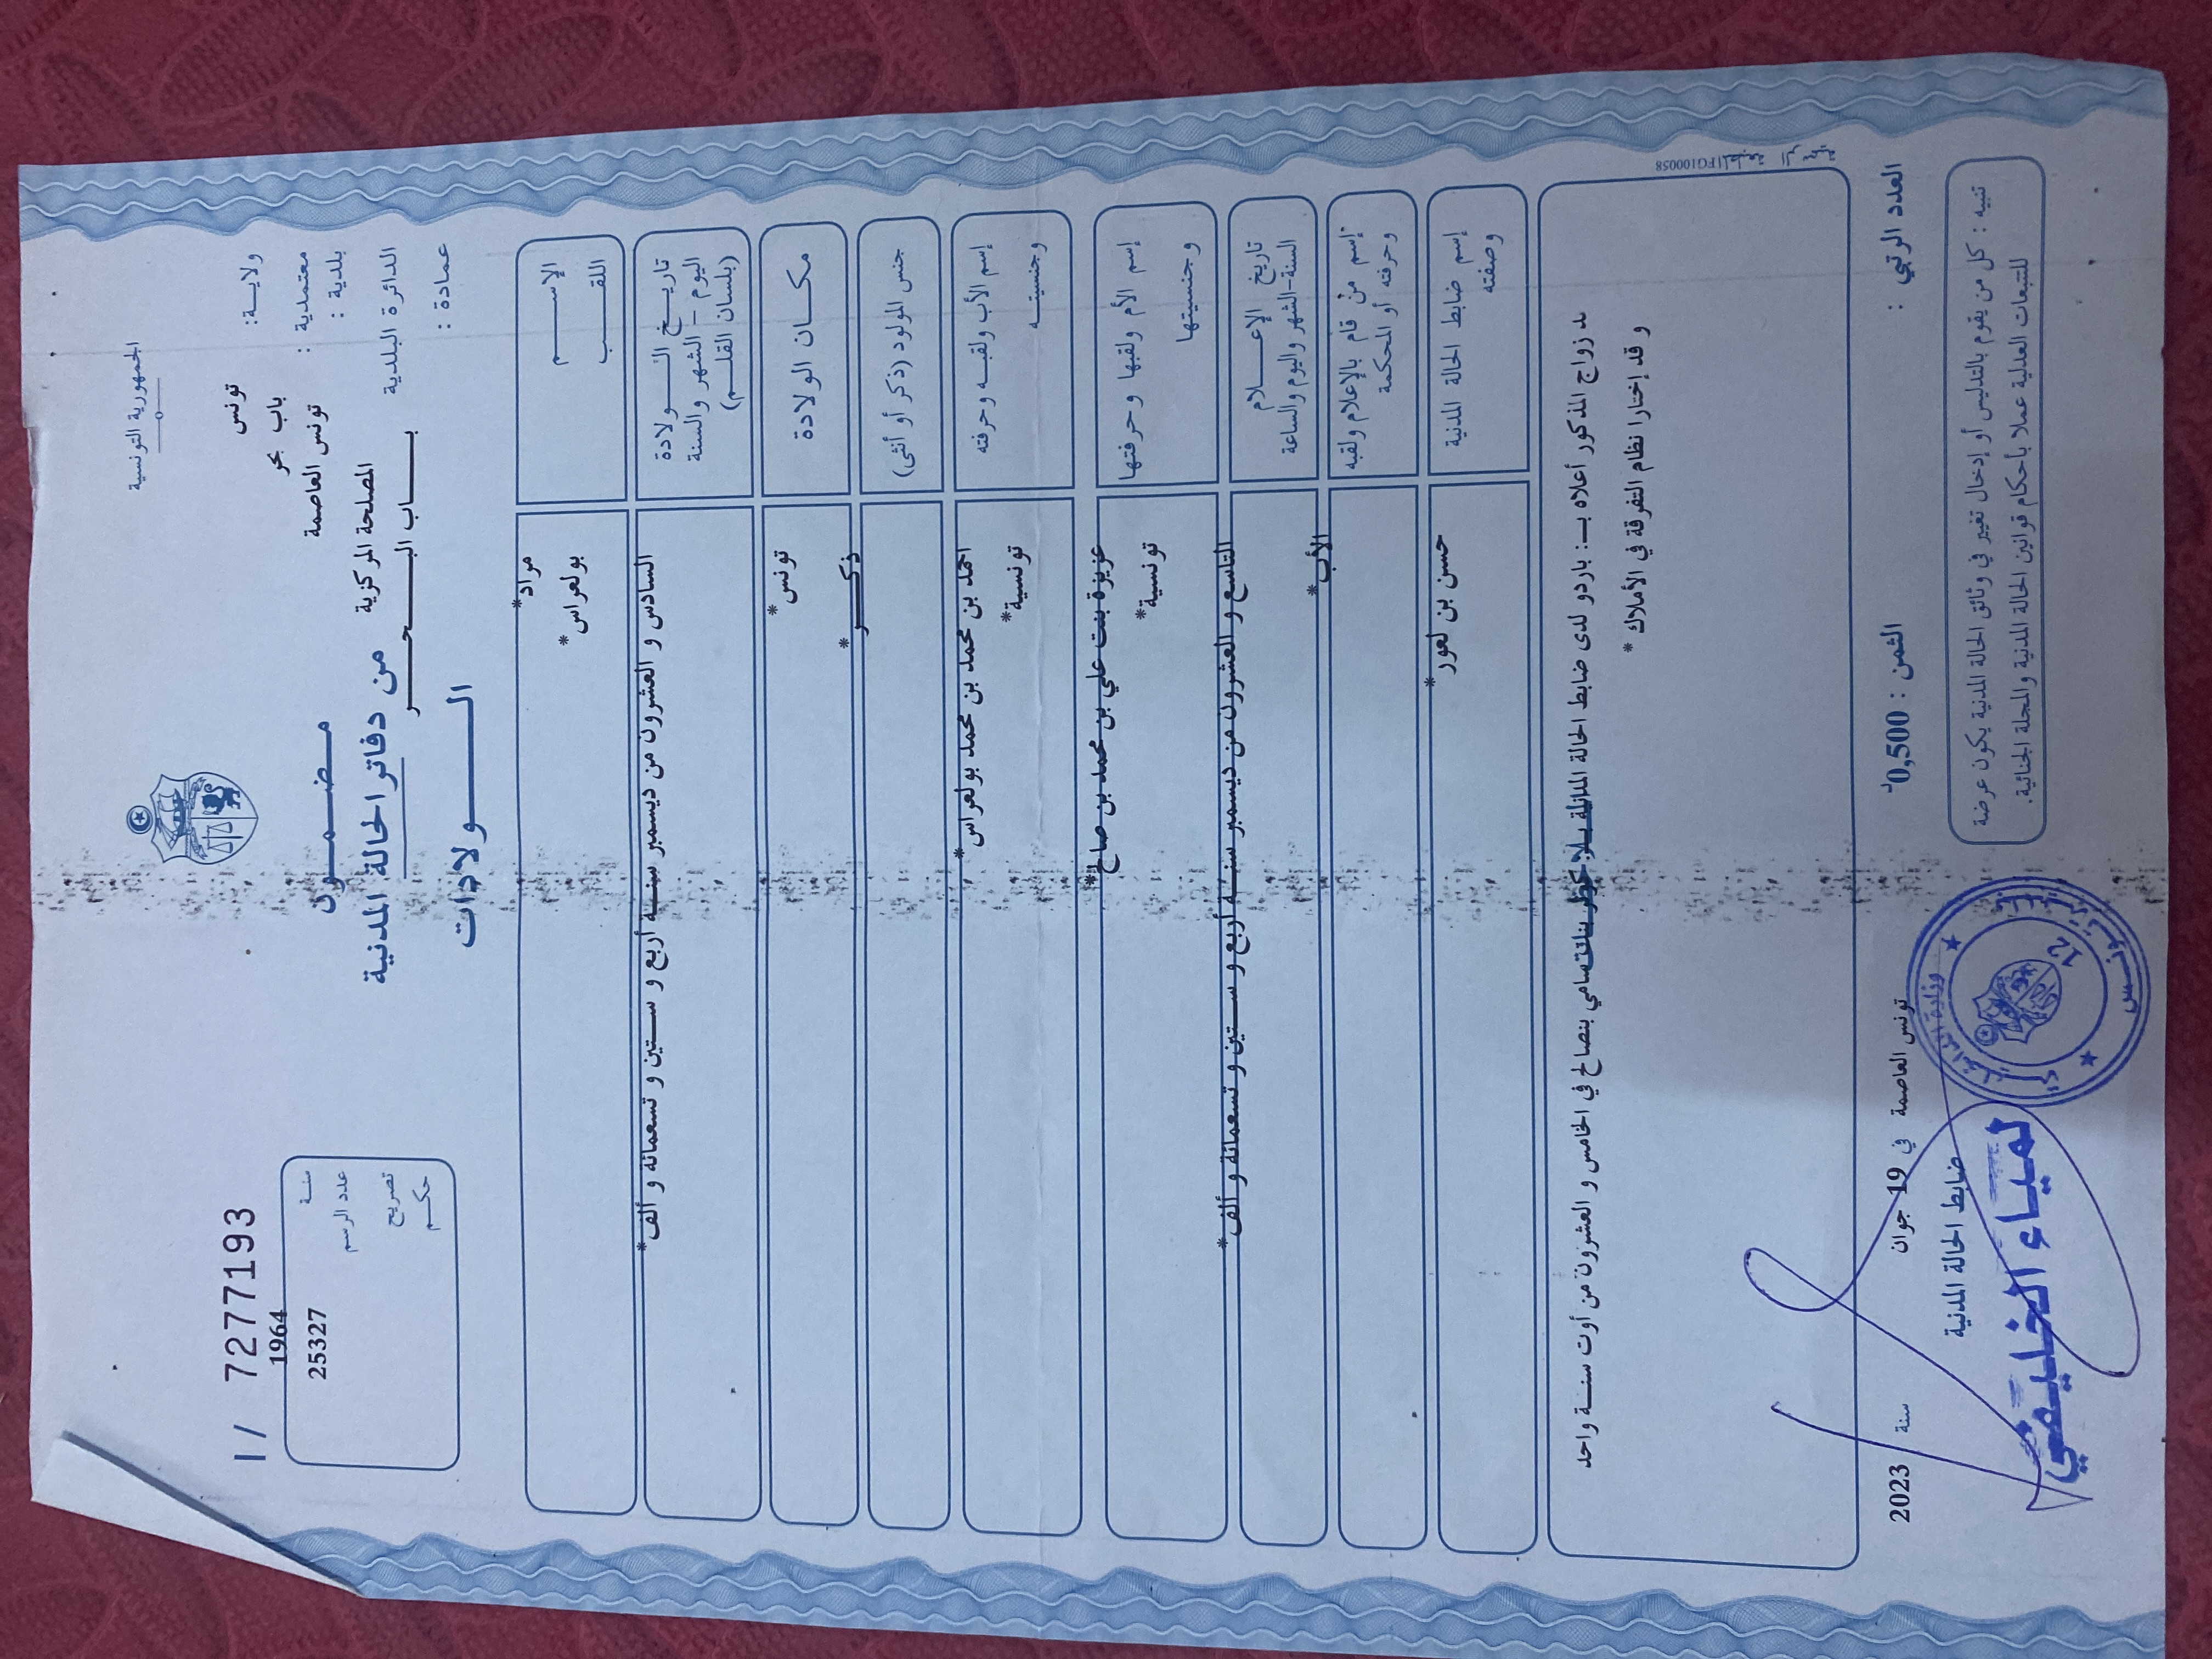 الجمهورية التونسية
ولاية: تونس
معتمدية : باب بحر
بلدية : تونس العاصمة
الدائرة البلدية المصلحة المركزية
عمادة : بـــاب البـــحـــر
مضمـــون
من دفاتر الحالة المدنية
الـــولادات
I/ 72771193
سنة 1964
عدد الرسم 25327
تصريح
حكم
الإســـم مراد*
اللقـــب بولعراس*
تاريـــخ الـــولادة
اليوم - الشهر والسنة
(بلسان القلـــم)
السادس و العشرون من ديسمبر سنـــة أربع و ستين و تسعمائة و ألف*
مكـــان الولادة تونس*
جنس المولود (ذكر أو أنثى) ذكـــر*
إسم الأب ولقبـه وحرفته احمد بن محمد بن محمد بولعراس*
وجنسيتـــه تونسية*
إسم الأم ولقبها وحرفتها عزيزة بنت علي بن محمد بن صالح*
وجنسيتها تونسية*
تاريخ الإعـــلام
السنة-الشهر واليوم والساعة
التاسع و العشرون من ديسمبر سنـــة أربع و ستين و تسعمائة و ألف*
إسم من قام بالإعلام ولقبه
وحرفته أو المحكمة
الأب*
إسم ضابط الحالة المدنية
وصفته
حسن بن لعور*
زواج المذكور أعلاه بـ: باردو لدى ضابط الحالة سامي بنصالح في الخامس و العشرون من أوت سنـــة واحد
و قد إختارا نظام التفرقة في الأملاك *
FG100058 المطبعة الرسمية
العدد الرتبي :
الثمن : 0,500د
تونس العاصمة في 19 جوان سنة 2023
ضابط الحالة المدنية
تنبيه : كل من يقوم بالتدليس أو إدخال تغيير في وثائق الحالة المدنية يكون عرضة
للتتبعات العدلية عملا بأحكام قوانين الحالة المدنية والمجلة الجنائية.
لمياء الخليفي
12